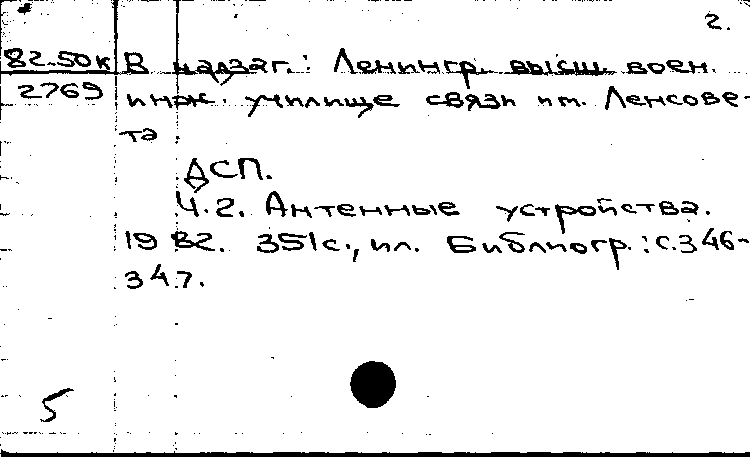 2.
82.50к В надзаг.: Ленингр. высш. воен.
2769 инж. училище связи им. Ленсове-
та.
ДСП.
Ч.2. Антенные устройства.
1982. 351с., ил. Библиогр.: с.346-
347.
5